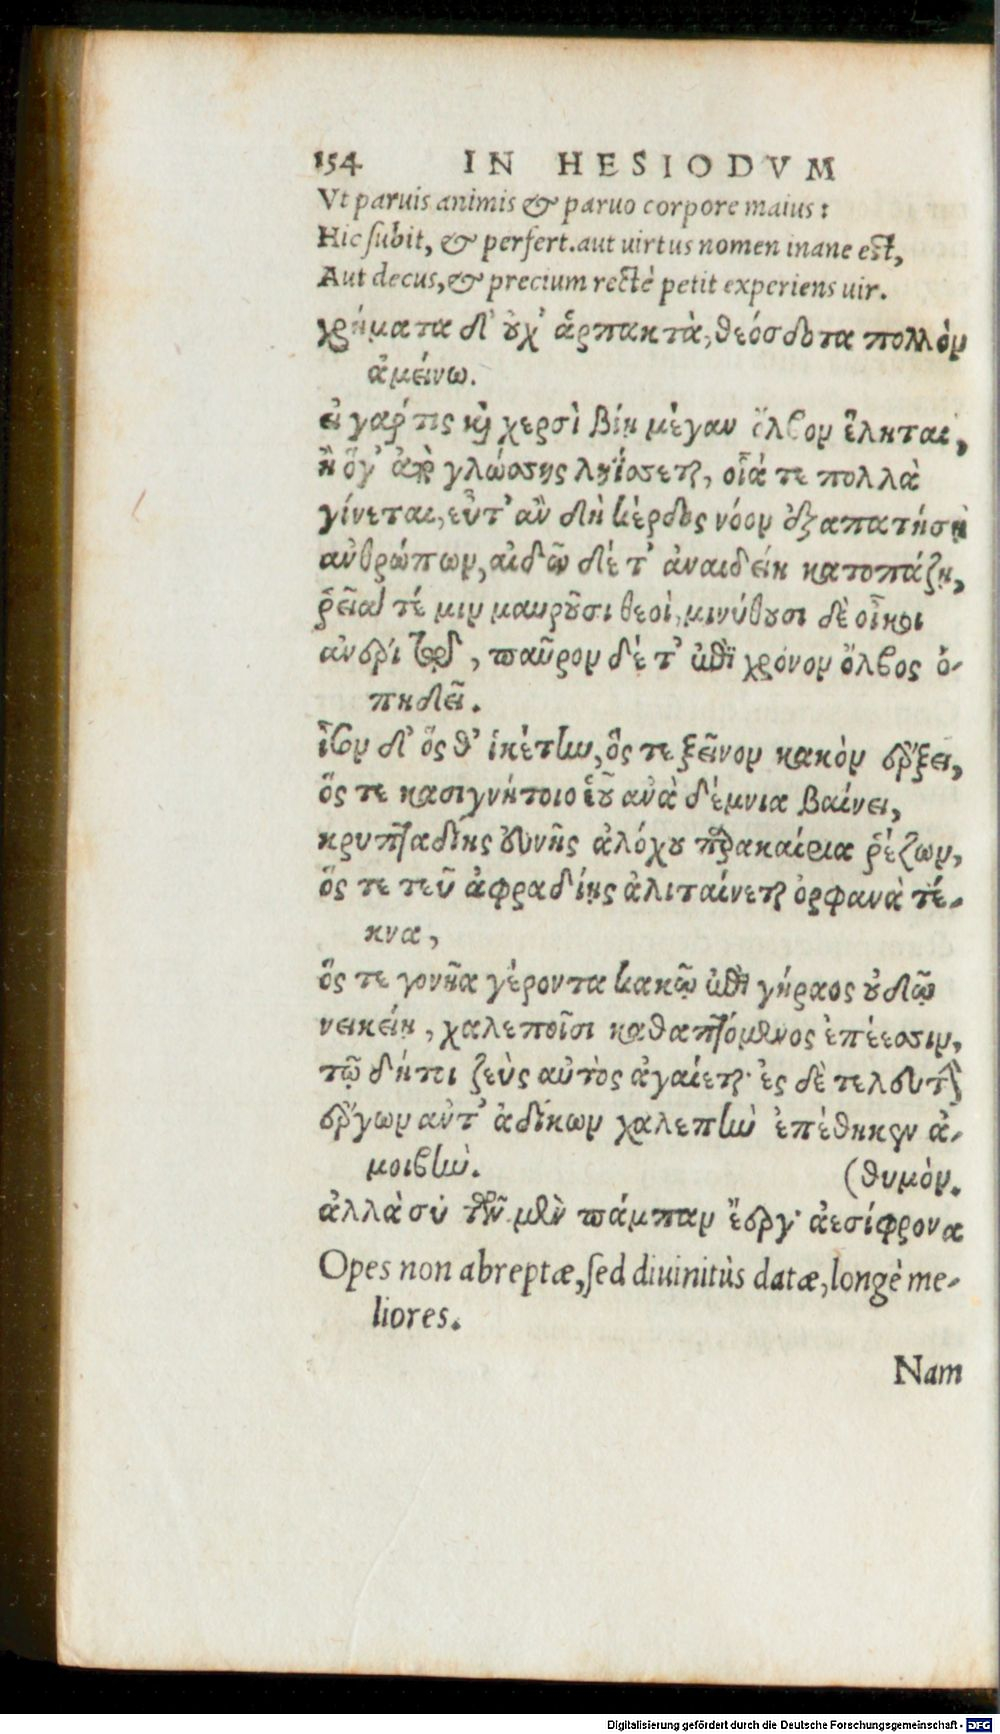 154 IN HESIODVM
Vt paruis animis & paruo corpore maius:
Hic subit, & perfert. aut uirtus nomen inane est,
Aut decus, & precium rectè petit experiens uir.
χρήματα δ' οὐχ' ἁρπακτὰ, θεόσδοτα πολλὸν
ἀμείνω.
εἰ γάρ τις καὶ χερσὶ βίῃ μέγαν ὄλβον ἕληται,
ἢ ὅγ' ἀπὸ γλώσσης ληΐσσεται, οἷά τε πολλὰ
γίνεται, εὖτ' ἂν δὴ κέρδος νόον ἐξαπατήσῃ
ἀνθρώπων, αἰδῶ δέ τ' ἀναιδείη κατοπάζῃ,
ῥεῖα τέ μιν μαυροῦσι θεοὶ, μινύθουσι δὲ οἶκοι
ἀνέρι τῷδ, παῦρον δέ τ' ἐπὶ χρόνον ὄλβος ὀ-
πηδεῖ.
ἶσον δ' ὅς θ' ἱκέτην, ὅς τε ξεῖνον κακὸν ἔρξει,
ὅς τε κασιγνήτοιο ἑοῦ ἀνὰ δέμνια βαίνει,
κρυπταδίης εὐνῆς ἀλόχου παρακαίρια ῥέζων,
ὅς τε τεῦ ἀφραδίῃς ἀλιταίνεται ὀρφανὰ τέ-
κνα,
ὅς τε γονῆα γέροντα κακῷ ἐπὶ γήραος οὐδῷ
νεικείῃ, χαλεποῖσι καθαπτόμενος ἐπέεσσιν,
τῷ δήτοι ζεὺς αὐτὸς ἀγαίεται· ἐς δὲ τελευτὴν
ἔργων ἀντ' ἀδίκων χαλεπὴν ἐπέθηκεν ἀ-
μοιβήν. (θυμόν.
ἀλλὰ σὺ τῶν μὲν πάμπαν ἔεργ' ἀεσίφρονα
Opes non abreptæ, sed diuinitùs datæ, longè me-
liores.
Nam
Digitalisierung gefördert durch die Deutsche Forschungsgemeinschaft - DFG